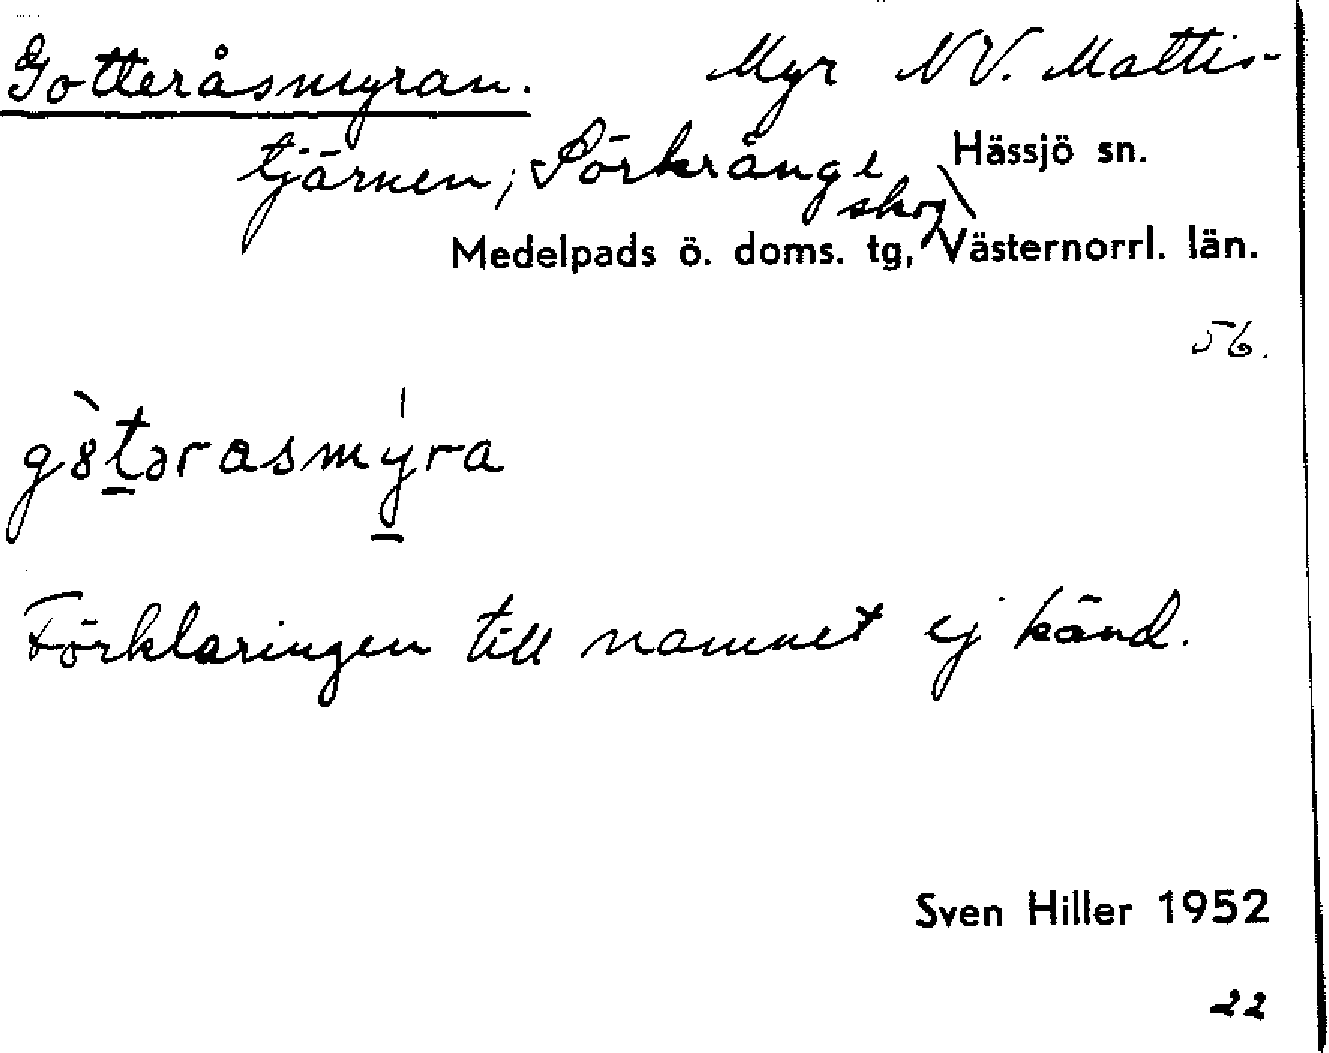 Gotteråsmyran. Myr NV. Mattis-
tjärnen, Sörkrånge Hässjö sn.
skog
Medelpads ö. doms. tg, Västernorrl. län.
56.
g8̀tərasmýra
Förklaringen till namnet ej känd.
Sven Hiller 1952
22